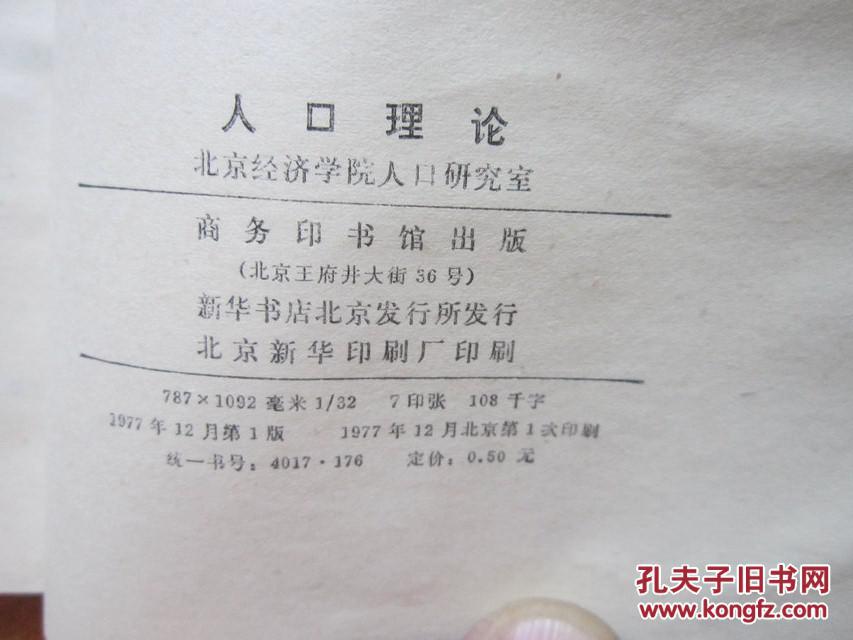 人口理论
北京经济学院人口研究室
商务印书馆出版
(北京王府井大街36号)
新华书店北京发行所发行
北京新华印刷厂印刷
787×1092 毫米 1/32 7 印张 108 千字
1977 年 12 月第 1 版 1977 年 12 月北京第 1 次印刷
统一书号: 4017·176 定价: 0.50 元
孔夫子旧书网
www.kongfz.com